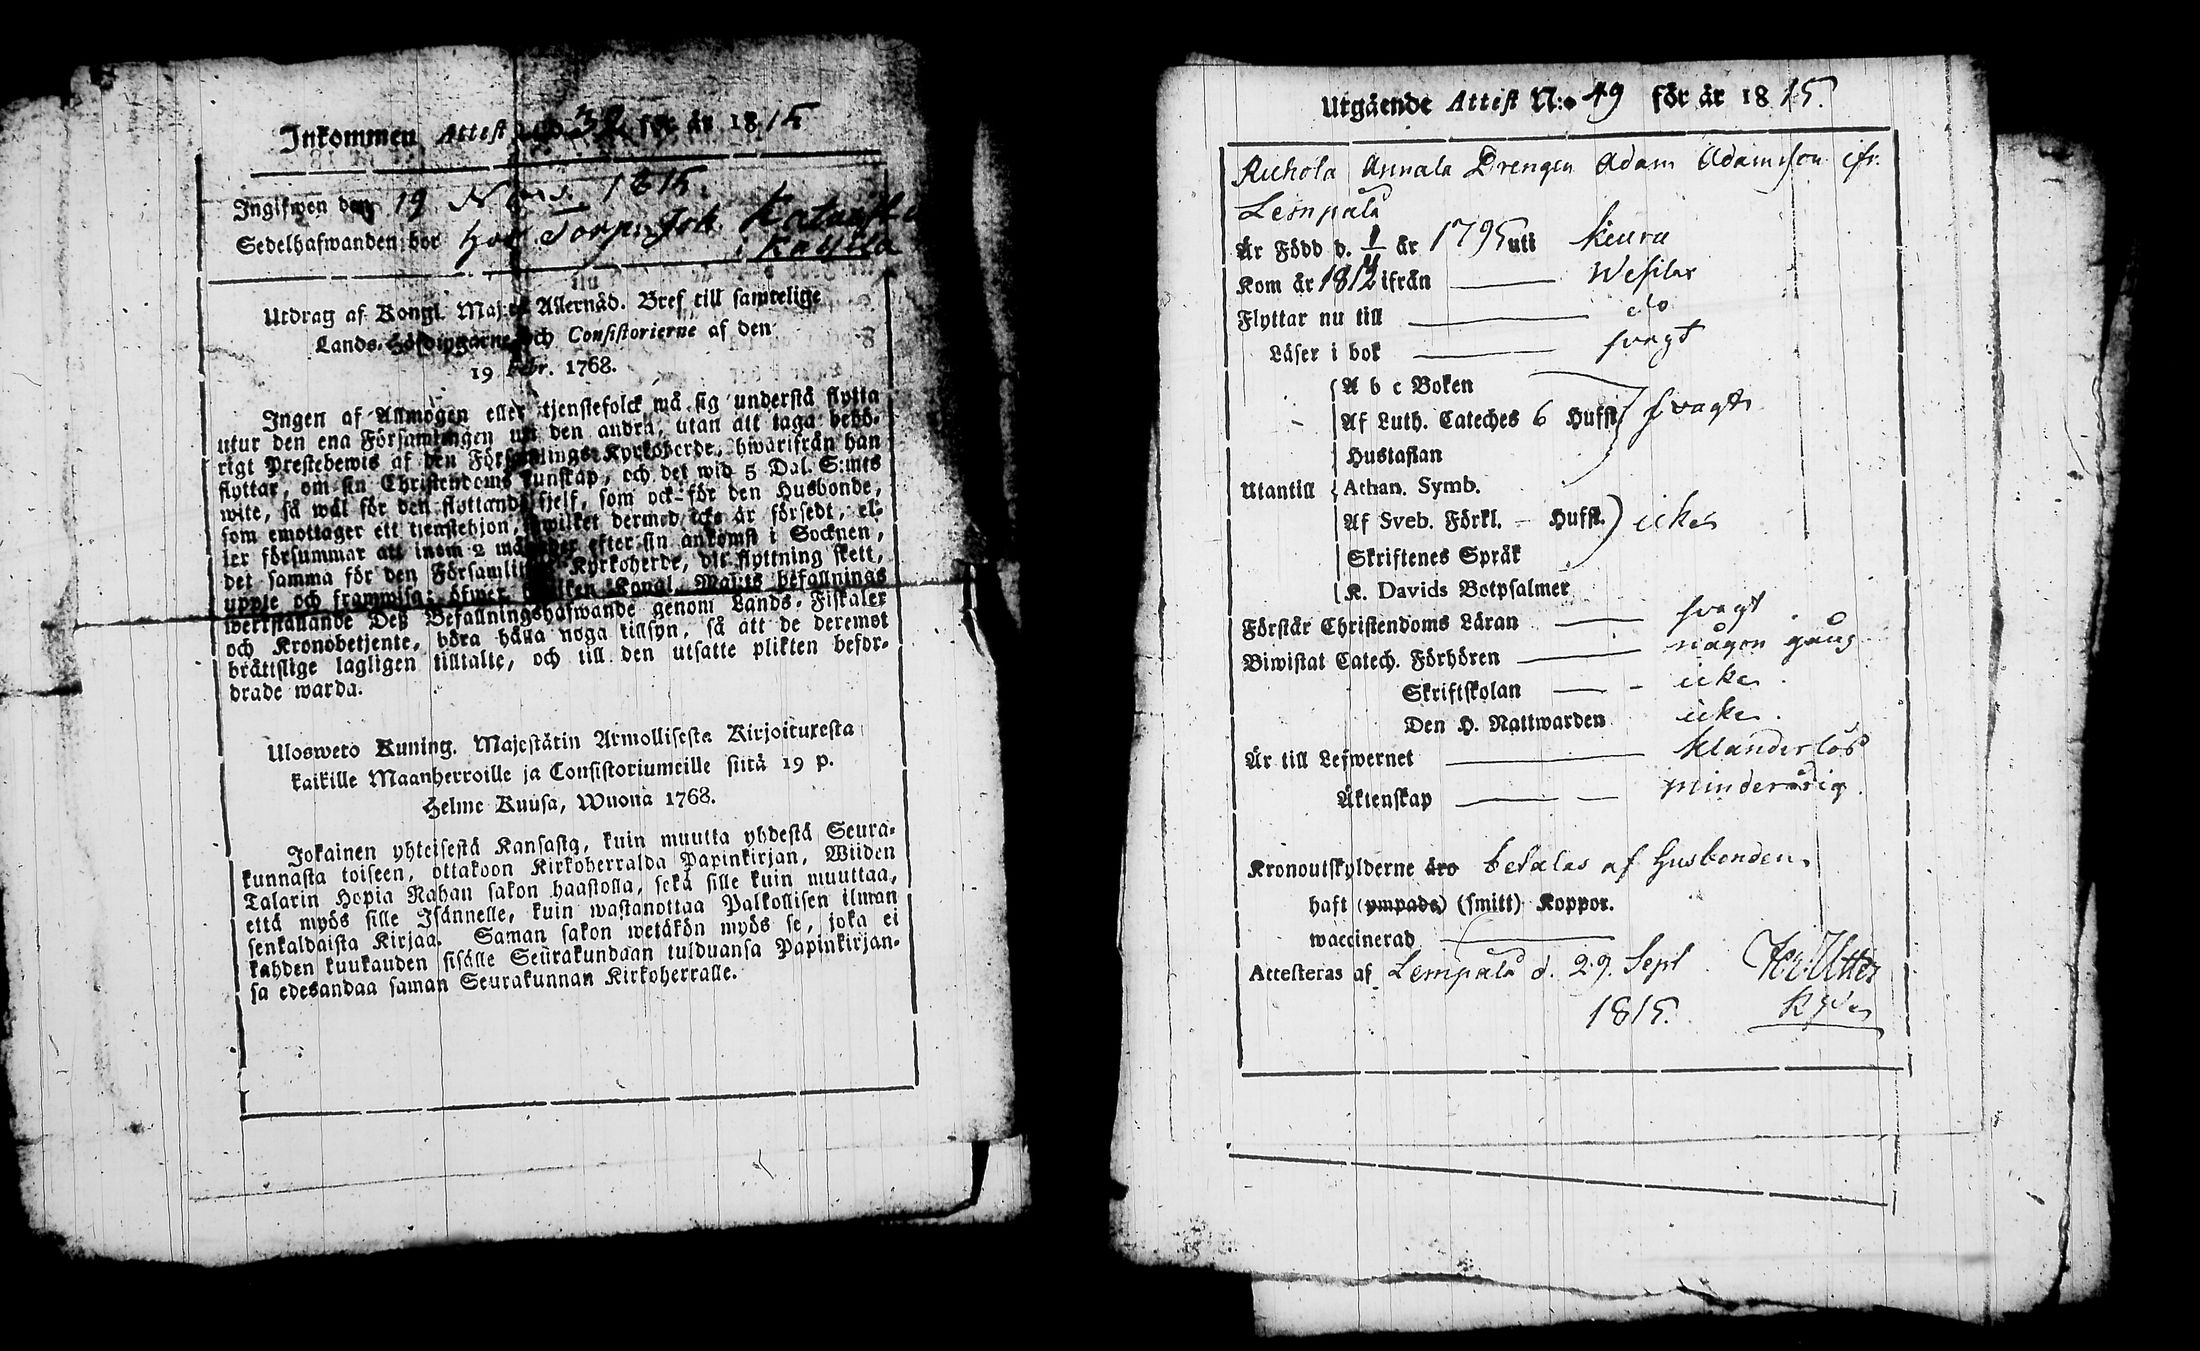 Inkommen Attest N:o 32 för år 1815
Ingifwen den 19 1815.
Sedelhafwanden bor hos Torp. Joh.
i
Utdrag af Kongl. Maj:ts Allernåd. Bref till samtelige
Lands-Höfdingarne och Consistorierne af den
19 Febr. 1768.
Ingen af Allmogen eller tjenstefolck må sig understå flytta
utur den ena Församlingen uti den andra, utan att taga behö-
rigt Prestebewis af den Församlings Kyrkoherde, hwarifrån han
flyttar, om sin Christendoms kunskap, och det wid 5 Dal. S:mts
wite, så wäl för den flyttande sjelf, som ock för den Husbonde,
som emottager ett tjenstehjon, hwilket dermed icke är försedt, el-
ler försummar att inom 2 månader efter sin ankomst i Socknen,
det samma för den Församlings Kyrkoherde, dit flyttning skett,
uppte och framwisa; öfwer hwilken Kongl. Maj:ts befallnings
werkställande Deß Befallningshafwande genom Lands-Fiskaler
och Kronobetjente, böra hålla noga tillsyn, så att de deremot
bråttslige lagligen tilltalte, och till den utsatte plikten befor-
drade warda.
Ulosweto Kuning. Majestätin Armollisesta Kirjoituxesta
kaikille Maanherroille ja Consistoriumeille siitä 19 p.
Helme Kuusa, Wuona 1768.
Jokainen yhteisestä Kansasta, kuin muutta yhdestä Seura-
kunnasta toiseen, ottakoon Kirkoherralda Papinkirjan, Wiiden
Talarin Hopia Rahan sakon haastolla, sekä sille kuin muuttaa,
että myös sille Isännelle, kuin wastanottaa Palkollisen ilman
senkaldaista Kirjaa. Saman sakon wetäkön myös se, joka ei
kahden kuukauden sisälle Seurakundaan tulduansa Papinkirjan-
sa edesandaa saman Seurakunnan Kirkoherralle.
Utgående Attest N:o 49 för år 1815.
Annala Drengen Adam Adamsson ifr.
Lempälä
Är Född d. 1/4 år 1795 uti Keuru
Kom år 1812 ifrån Wesilax
Flyttar nu till do
Läser i bok svagt
A b c Boken
Af Luth. Cateches 6 Hufst. svagt
Hustaflan
Utantill Athan. Symb.
Af Sveb. Förkl. – Hufst. icke
Skriftenes Språk
K. Davids Botpsalmer
Förstår Christendoms Läran svagt
Biwistat Catech. Förhören någon gång
Skriftskolan icke
Den H. Nattwarden icke.
Är till Lefwernet klanderlös
Äktenskap minderårig
Kronoutskylderne äro betalas af Husbonden
haft (ympade) (smitt) Koppor.
waccinerad
Attesteras af Lempälä d. 29. Sept
1815.